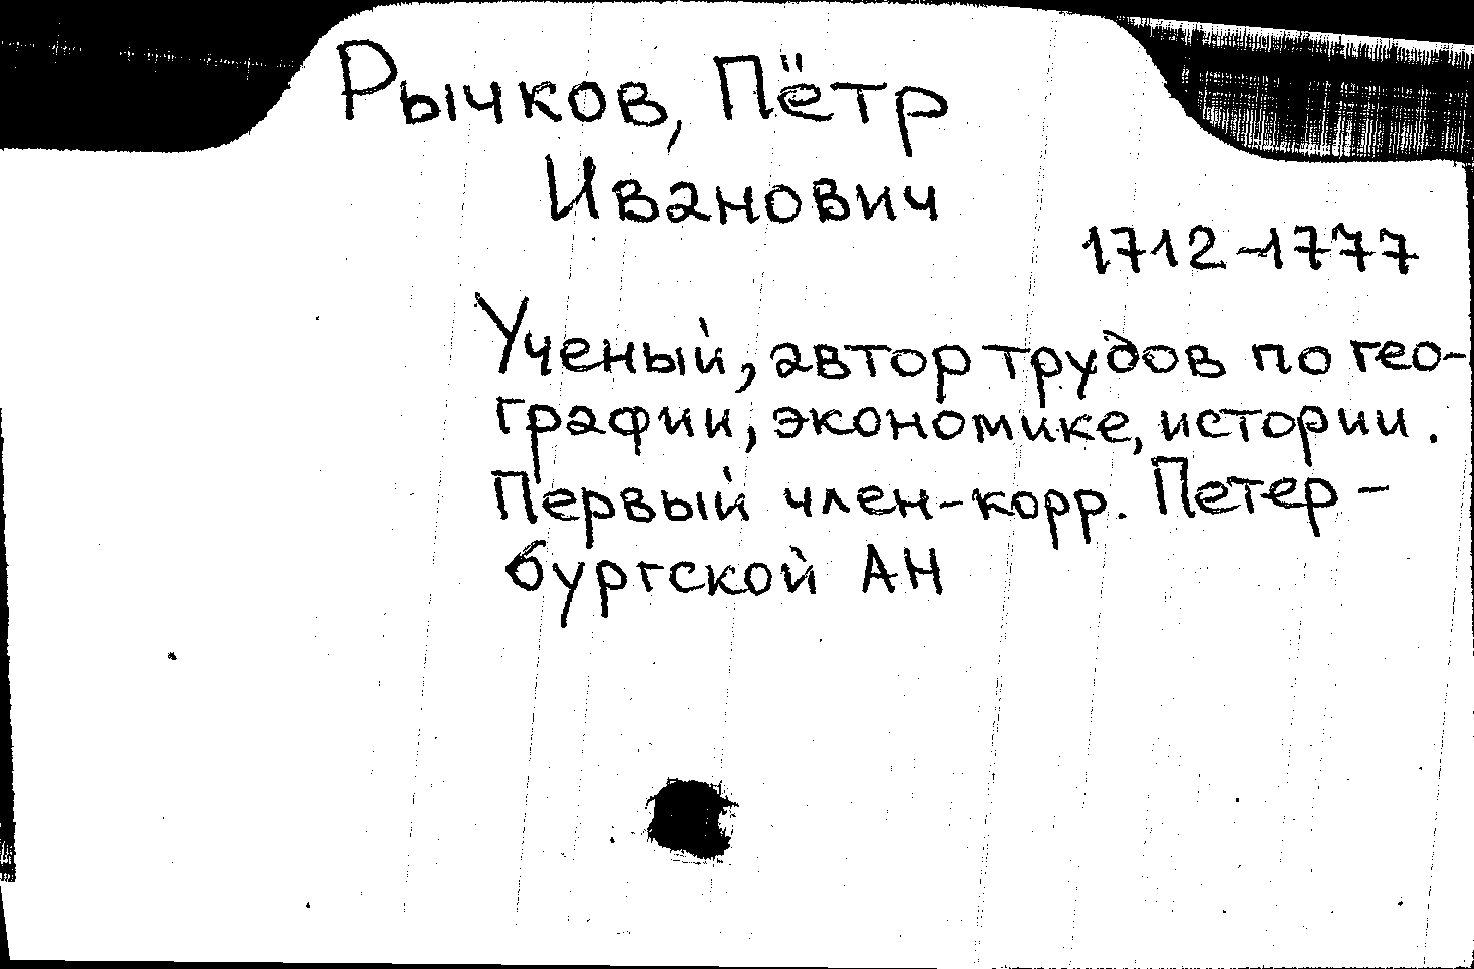 Рычков, Пётр
Иванович
1712-1777
Ученый, автор трудов по гео-
графии, экономике, истории.
Первый член-корр. Петер-
бургской АН